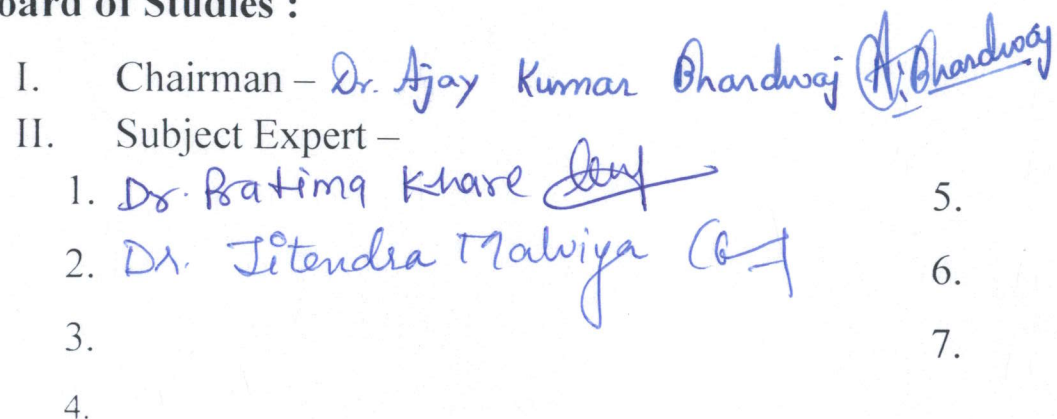 Board of Studies :
I. Chairman – Dr. Ajay Kumar Bhardwaj A. Bhardwaj
II. Subject Expert –
1. Dr. Pratima Khare
5.
2. Dr. Jitendra Malviya
6.
3.
7.
4.